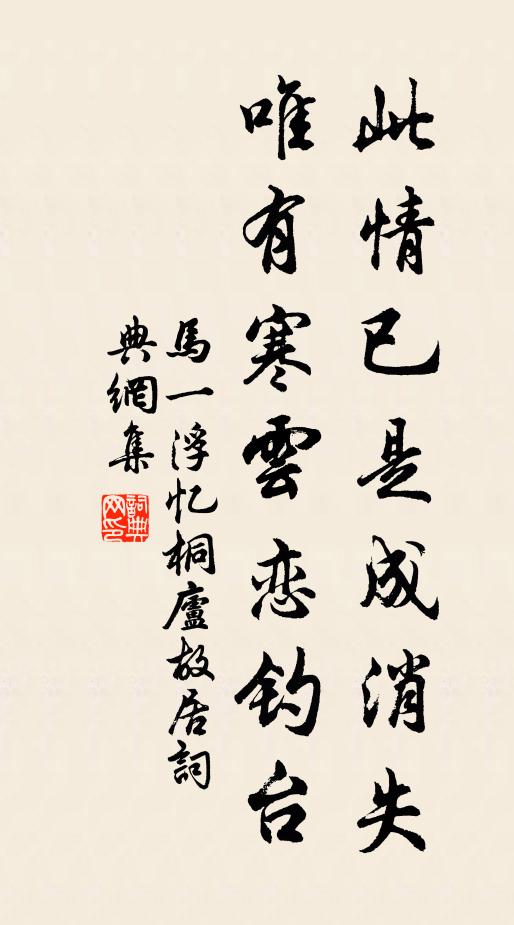 此情已是成消失
唯有寒雲恋钓台
馬一浮忆桐廬故居詞
典網集
詞典网印